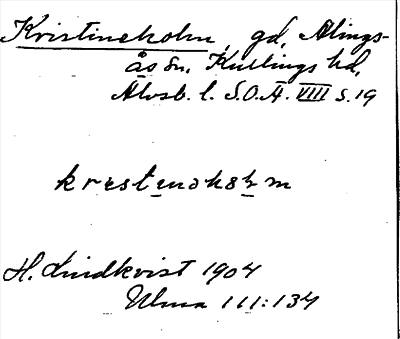 Kristineholm, gd, Alings-
ås sn. Kullings hd,
Älvsb. l. S.O.Ä. VIII s. 19
H. Lindkvist 1904
Ulma 111:134